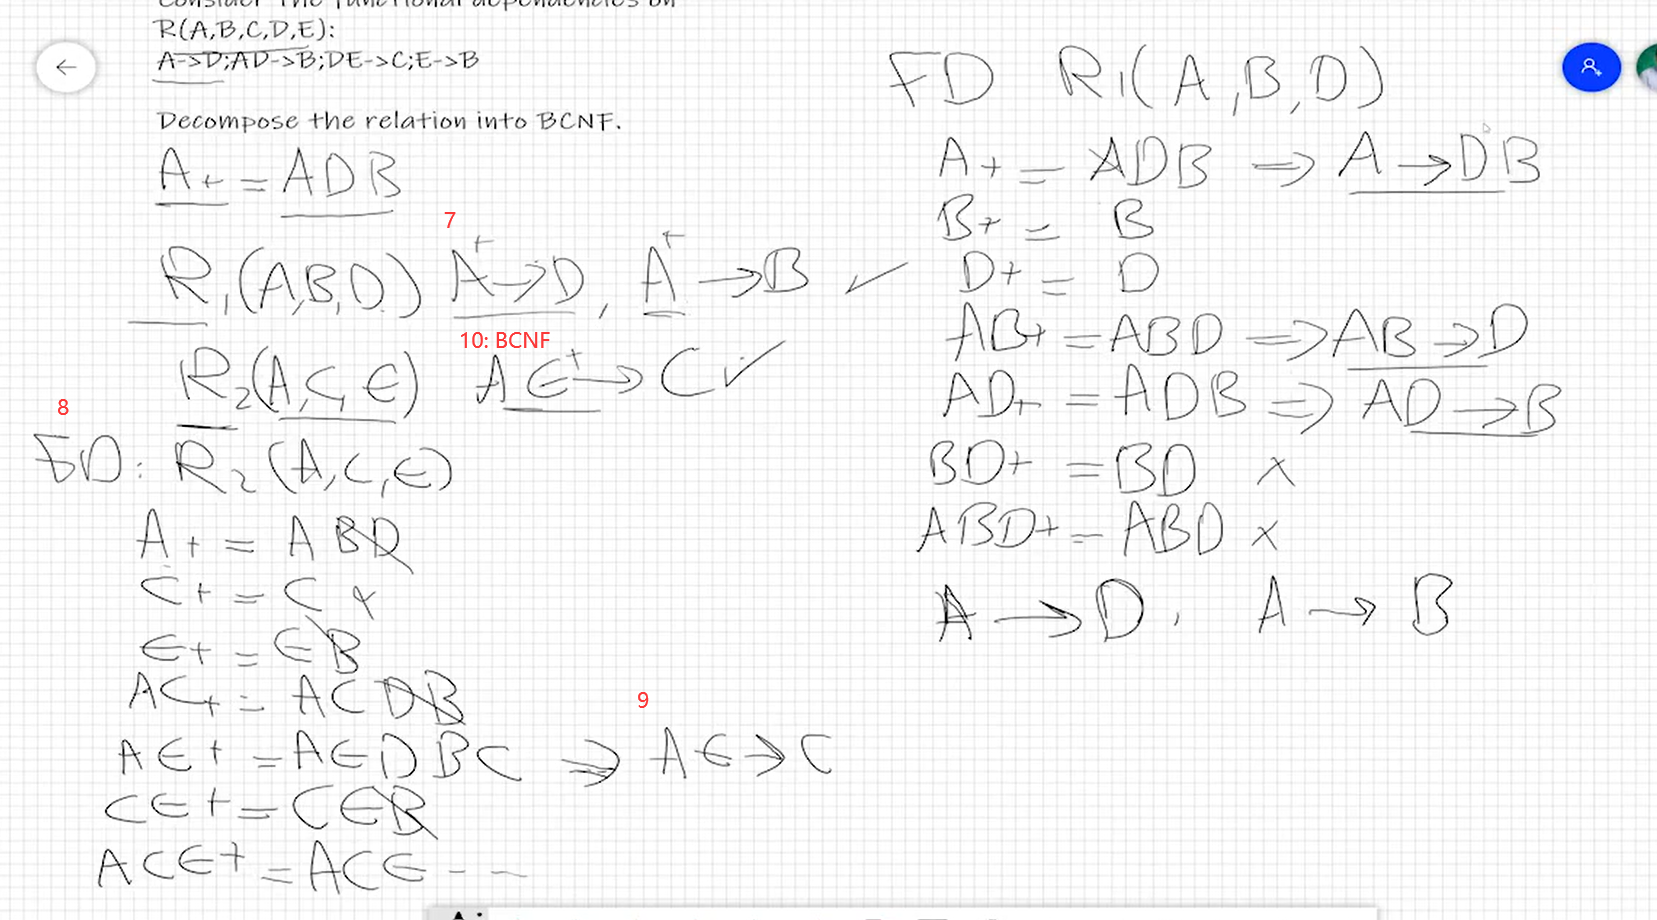 Consider the functional dependencies on
R(A,B,C,D,E):
A->D;AD->B;DE->C;E->B
Decompose the relation into BCNF.
A+ = ADB
7
R1(A,B,D) A+→D, A+→B ✓
10: BCNF
R2(A,C,E) AE+→C ✓
8
FD: R2(A,C,E)
A+ = ABD
C+ = C x
E+ = EB
AC+ = ACDB
9
AE+ = AEDBC ⇒ AE→C
CE+ = CEB
ACE+ = ACE - -
FD R1(A,B,D)
A+ = ADB ⇒ A→DB
B+ = B
D+ = D
AB+ = ABD ⇒ AB→D
AD+ = ADB ⇒ AD→B
BD+ = BD x
ABD+ = ABD x
A→D, A→B